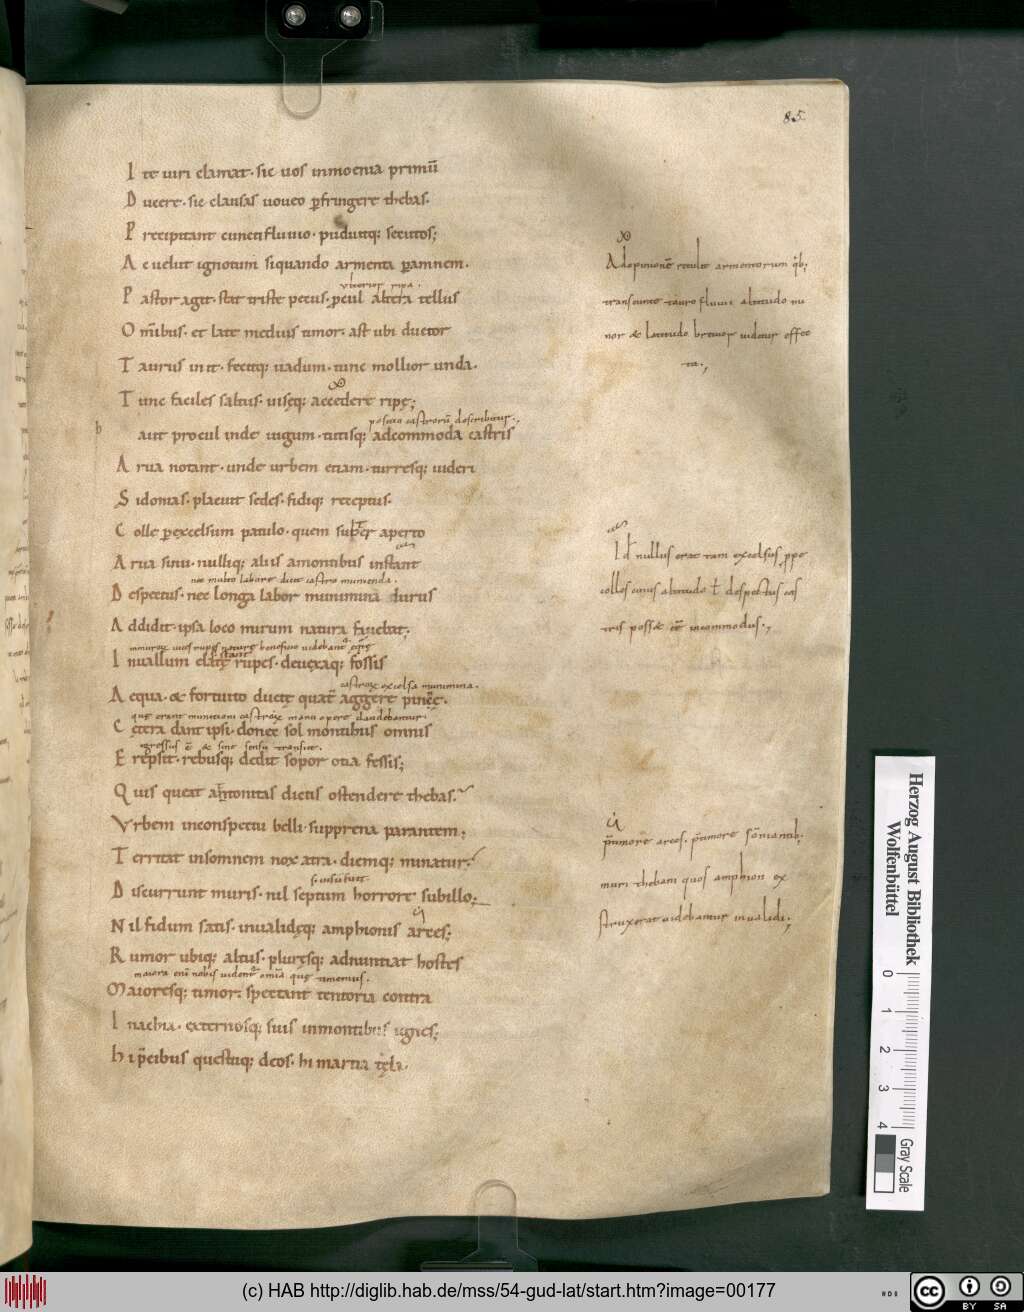 85
I te uiri clamat· sic uos inmoenia primū
D ucere· sic clausas uoueo ꝑfringere thebas·
P recipitant cuncti fluuio· puduitq; secutos;
A c uelut ignotum siquando armenta ꝑamnem·
ulterior ripa·
P astor agit· stat triste pecus· ꝓcul altera tellus
O mībus· et late medius timor· ast ubi ductor
T aurus init· fecitq; uadum· tunc mollior unda·
T unc faciles saltus· uisęq; accedere ripę;
positio castrorū describitur·
aut procul inde iugum· tutisq; adcommoda castris
A rua notant· unde urbem etiam· turresq; uideri
S idonias· placuit sedes· fidiq; receptus·
C olle ꝑexcelsum patulo· quem subter aperto
A rua sinu· nulliq; aliis amontibus instant
nec multo labore
D espectus· nec longa labor munimina durus
A ddidit· ipsa loco mirum natura fauebat·
I nuallum elatę rupes· deuexaq; fossis
castrorꝝ excelsa munimina·
A equa· & fortuito ductę quat aggere pinnę·
C ętera dant ipsi· donec sol montibus omnis
E repsit· rebusq; dedit sopor otia fessis;
Q uis queat attonitas dictis ostendere thebas·
Vrbem inconspectu belli· supprema parantem;
T erritat insomnem nox atra· diemq; minatur·
D iscurrunt muris· nil septum horrore sub illo;
N il fidum satis· inualidęq; amphionis arces;
R umor ubiq; alius· pluręsq; adnuntiat hostes
Maioresq; timor· spectant tentoria contra
I nachia· externosq; suis inmontibus ignes;
H i p̄cibus questuq; deos· hi martia tela·
Adopinionē retulit armentorum qͥb;
transeunte tauro fluuii altitudo mi
nor & latitudo breuior uidetur effec
ta·,
nullus erat tam excelsus ꝓpe
collos cuius altitudo ł despectus cas
tris poss& eē incommodus·,
p̄timore arces·
muri thebani quos amphion ex
struxerat uidebantur inualidi;
Herzog August Bibliothek
Wolfenbüttel
0 1 2 3 4
Gray Scale
(c) HAB http://diglib.hab.de/mss/54-gud-lat/start.htm?image=00177
cc
BY SA